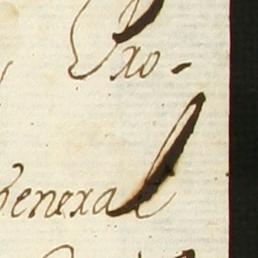 Pro-
General